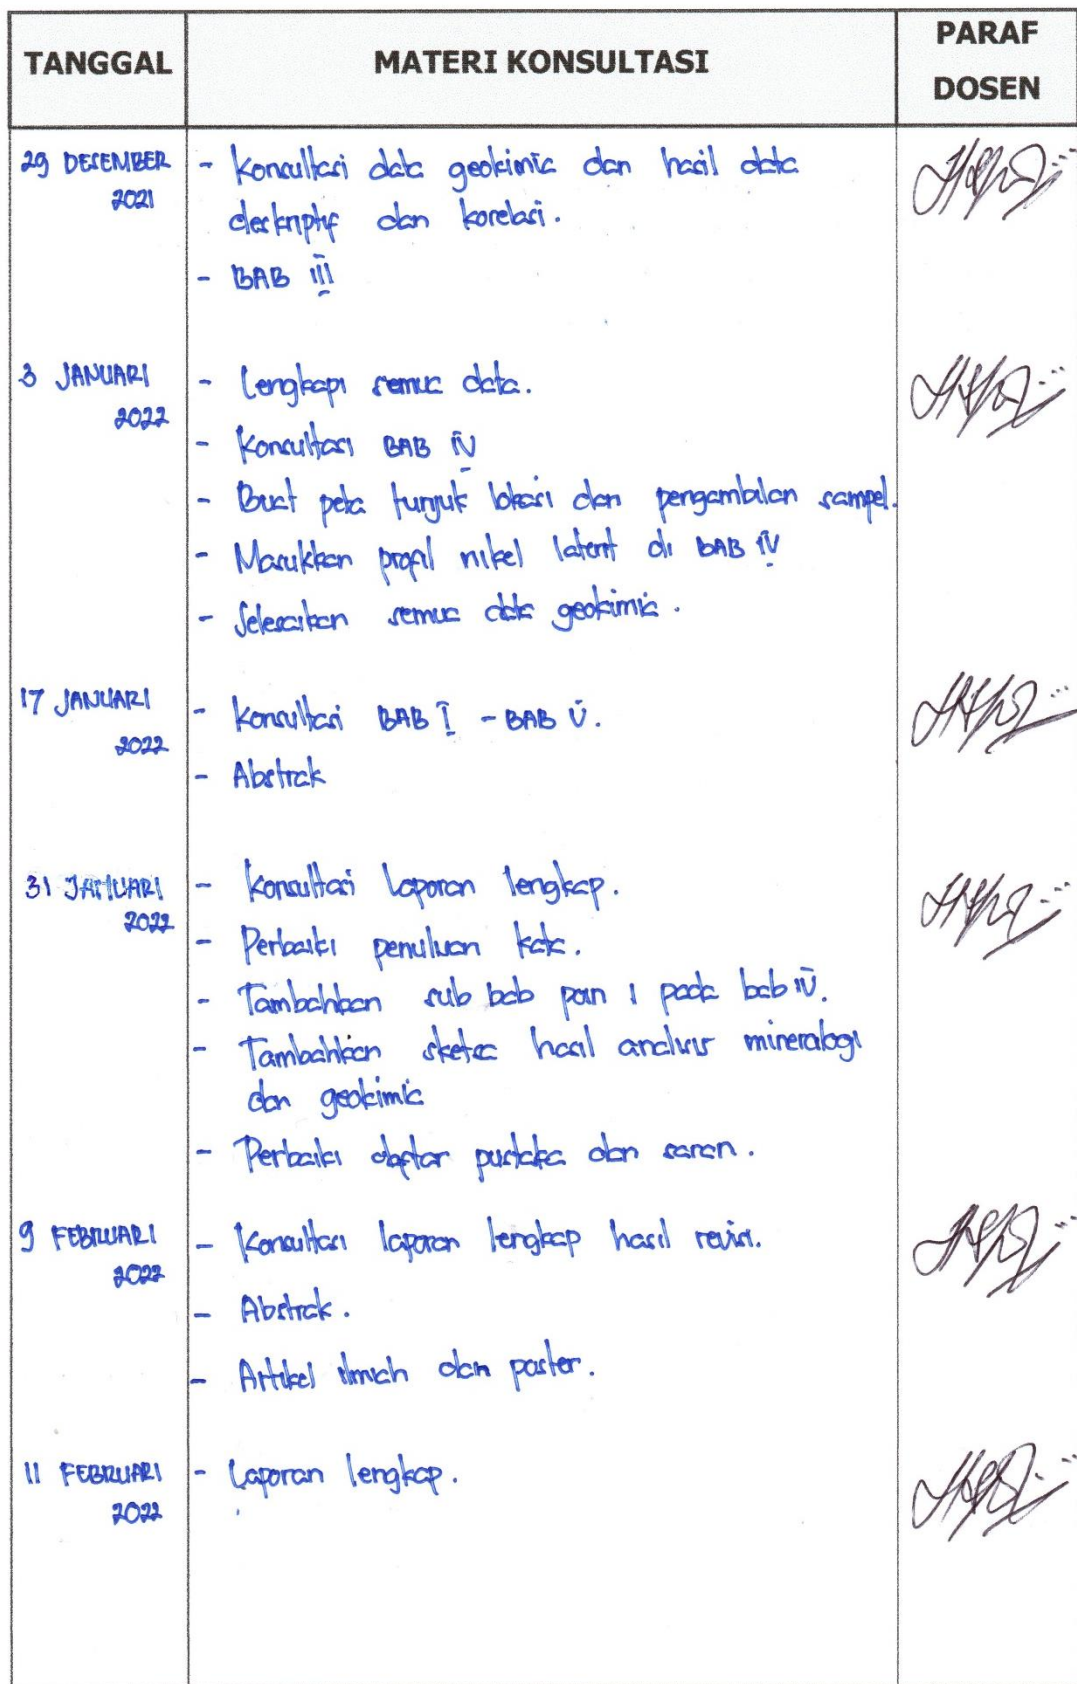 TANGGAL MATERI KONSULTASI PARAF DOSEN
29 DESEMBER 2021
- Konsultasi data geokimia dan hasil data
deskriptif dan korelasi.
- BAB III
3 JANUARI 2022
- Lengkapi semua data.
- Konsultasi BAB IV
- Buat peta tunjuk lokasi dan pengambilan sampel.
- Masukkan profil nikel laterit di BAB IV
- Selesaikan semua data geokimia.
17 JANUARI 2022
- Konsultasi BAB I - BAB V.
- Abstrak
31 JANUARI 2022
- Konsultasi laporan lengkap.
- Perbaiki penulisan kata.
- Tambahkan sub bab poin 1 pada bab IV.
- Tambahkan sketsa hasil analisis mineralogi
dan geokimia
- Perbaiki daftar pustaka dan saran.
9 FEBRUARI 2022
- Konsultasi laporan lengkap hasil revisi.
- Abstrak.
- Artikel ilmiah dan poster.
11 FEBRUARI 2022
- Laporan lengkap.